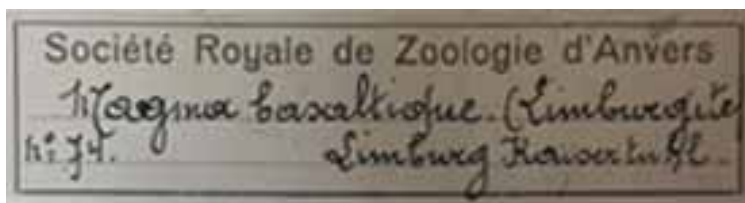 Société Royale de Zoologie d'Anvers
Magma basaltique. (Limburgite
No 74. Limburg Kaiserstuhl.